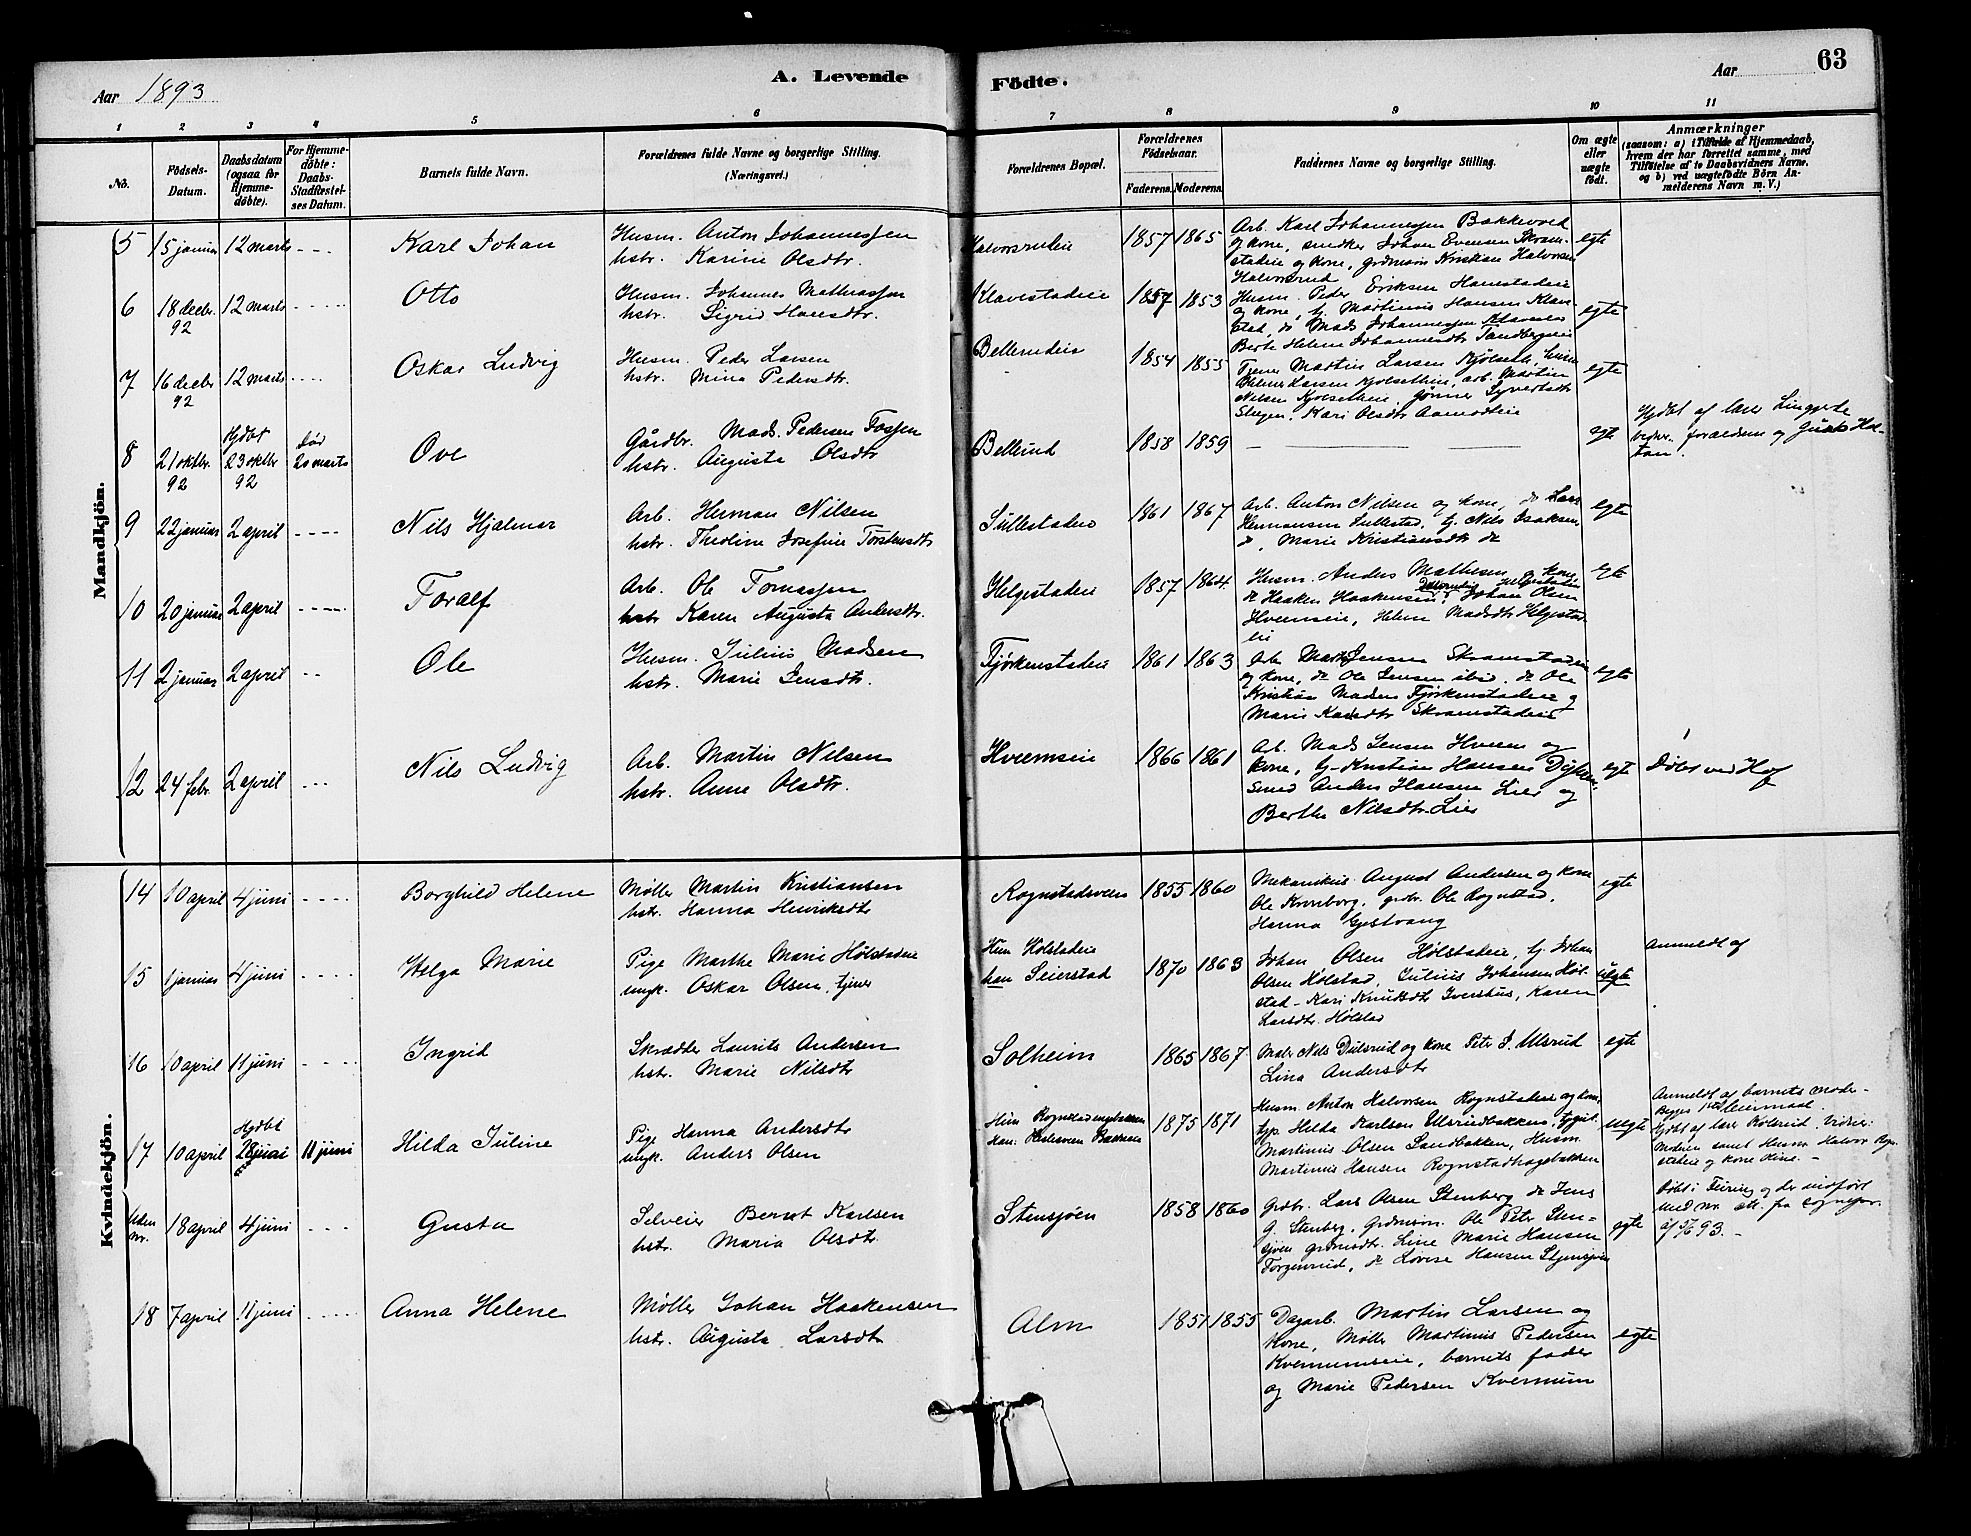 Aar 1893
A. Levende
Födte.
Aar
63
1 2 3 4 5 6 7 8 9 10 11
No.
Födsels-Datum.
Daabsdatum (ogsaa for Hjemmedöbte).
For Hjemmedöbte: Daabs-Stadfæstelses Datum.
Barnets fulde Navn.
Forældrenes fulde Navne og borgerlige Stilling.
(Næringsvei.)
Forældrenes Bopæl.
Forældrenes Födselsaar.
Faderens. Moderens.
Faddernes Navne og borgerlige Stilling.
Om ægte eller uægte födt.
Anmærkninger
(saasom: a) i Tilfælde af Hjemmedaab,
hvem der har forrettet samme, med
Tilföielse af to Daabsvidners Navne,
og b) ved uægtefödte Börn Anmelderens Navn m. V.)
Mandkjön.
5 15 januar 12 marts Karl Johan
Husm. Anton Johannessen
hstr. Karine Olsdtr.
Halvorsrudeie 1857 1865
Arb. Karl Johannessen Bakkeoved
og kone, snedker Johan Evensen Skramstadeie og kone, grdmsön Kristian Halvorsen
Halvorsrud
egte
6 18 decbr. 92 12 marts Otto
Husm. Johannes Mathiassen
hstr. Sigrid Hansdtr.
Klavestadeie 1857 1853
Husm. Peder Eriksen Hanstadeie
og kone, tj. Martinus Hansen Klavestad, do Mads Johannessen Klavestad
Berte Helene Johannesdtr Sandbergeie
egte
7 16 decbr 92 12 marts Oskar Ludvig
Husm. Peder Larsen
hstr. Mina Pedersdtr.
Bellerudeie 1854 1855
Tjener Martin Larsen Kjölseth,
Larsen Kjolsetheie, arb. Martin
Nilsen Kjolsetheie,
Kari Olsdtr
egte
8 21 oktbr. 92 Hjdbt 23 oktbr 92 20 marts Ove
Gårdbr. Mads Pedersen Fossen
hstr. Augusta Olsdtr
Bellerud 1858 1859
egte
Hjdbt af
forældrene og
9 22 januar 2 april Nils Hjalmar
Arb. Herman Nilsen
hstr. Theoline Josefine Torstensdtr
Sullestadeie 1861 1867
Arb. Anton Nilsen og kone, do Lars
Hermansen Sullestad, tj. Nils Isaksen
do, Marie Kristiansdtr do
egte
10 20 januar 2 april Toralf
Arb. Ole Tomassen
hstr Karen Augusta Andersdtr.
Helgestadeie 1857 1864
Husm. Anders Mathesen og kone
do Haaken Haakensen, Johan Olsen
Hveemseie, Helene Madsdtr Helgestadeie
egte
11 2 januar 2 april Ole
Husm. Julius Madsen
hstr. Marie Jensdtr.
Fjörkenstadeie 1861 1863
Arb Mads Jensen Skramstadeie
og kone, do Ole Jensen ibid. do Ole
Kristian Madsen Fjörkenstadeie og
Maris Skramstadeie
egte
12 24 febr. 2 april Nils Ludvig
Arb. Martin Nilsen
hstr. Anne Olsdtr.
Hveemseie 1866 1861
Arb. Mads Jensen Hveem og
kone, tj. Kristian Hansen
smed Anders Hansen Lier og
Berthe Nilsdtr. Lier
egte
Döbt ved Hof
Kvindekjön.
14 10 april 4 juni Borghild Helene
Møller Martin Kristiansen
hstr. Hanna Henriksdtr
Rognstadeveien 1855 1860
Mekanikus August Andersen og kone
Ole Kronborg, grdbr. Ole Rognstad,
Hanna Gjestvang
egte
15 1 januar 4 juni Helga Marie
Pige Marthe Marie Hølstadeie
ungk. Oskar Olsen, tjener
Hun Holstadeie
han Seierstad 1870 1863
Johan Olsen Hølstadeie, tj. Johan
Olsen Hølstad, Julius Johansen Hølstad - Kari Knudsdtr Ivershus, Karen
Larsdtr. Hølstad
uegte
Anmeldt af
16 10 april 11 juni Ingrid
Skrædder Laurits Andersen
hstr. Marie Nilsdtr
Solheim 1865 1867
Maler Nils Dulsrud og kone Peter S. Ulsrud
Lina Andersdtr
egte
17 10 april Hjdbt 28 juni 11 juni Hilda Juline
Pige Hanna Andersdtr
ungk. Anders Olsen
Hun Rognstadengbakken
han: Bakken 1875 1871
Husm. Anton Halvorsen Rognstadeie og kone,
Hilda Karlsen Ulsrudbakken,
Martinus Olsen Sandbakken, Husm
Martinus Hansen Rognstadhagebakken
uegte
Anmeldt af barnets moder
Begges 1ste leiermaal.
Hjdbt af lærer Kolsrud, vidner:
Moderen samt Husm Halvor Rognstadeie og kone Oline. -
Uden nr. 18 april 4 juni Gusta
Selveier Bernt Karlsen
hstr. Maria Olsdtr.
Stensjöen 1858 1860
Grdbr. Lars Olsen Stenberg do Jens
G. Stenberg, Grdmsön. Ole Peter Stensjöen grdmsdtr. Line Marie Hansen
Torgunrud, do Lovise Hansen Stensjöen
egte
Döbt i Feiring og der indfört
med nr. att. fra sognepr.
af 5/6 93. -
18 7 april 11 juni Anna Helene
Møller Johan Haakensen
hstr. Augusta Larsdtr
Alm 1851 1855
Dagarb. Martin Larsen og
kone, Møller Martinus Pedersen
Kvernumseie, barnets fader
og Marie Pedersen Kvernum
egte